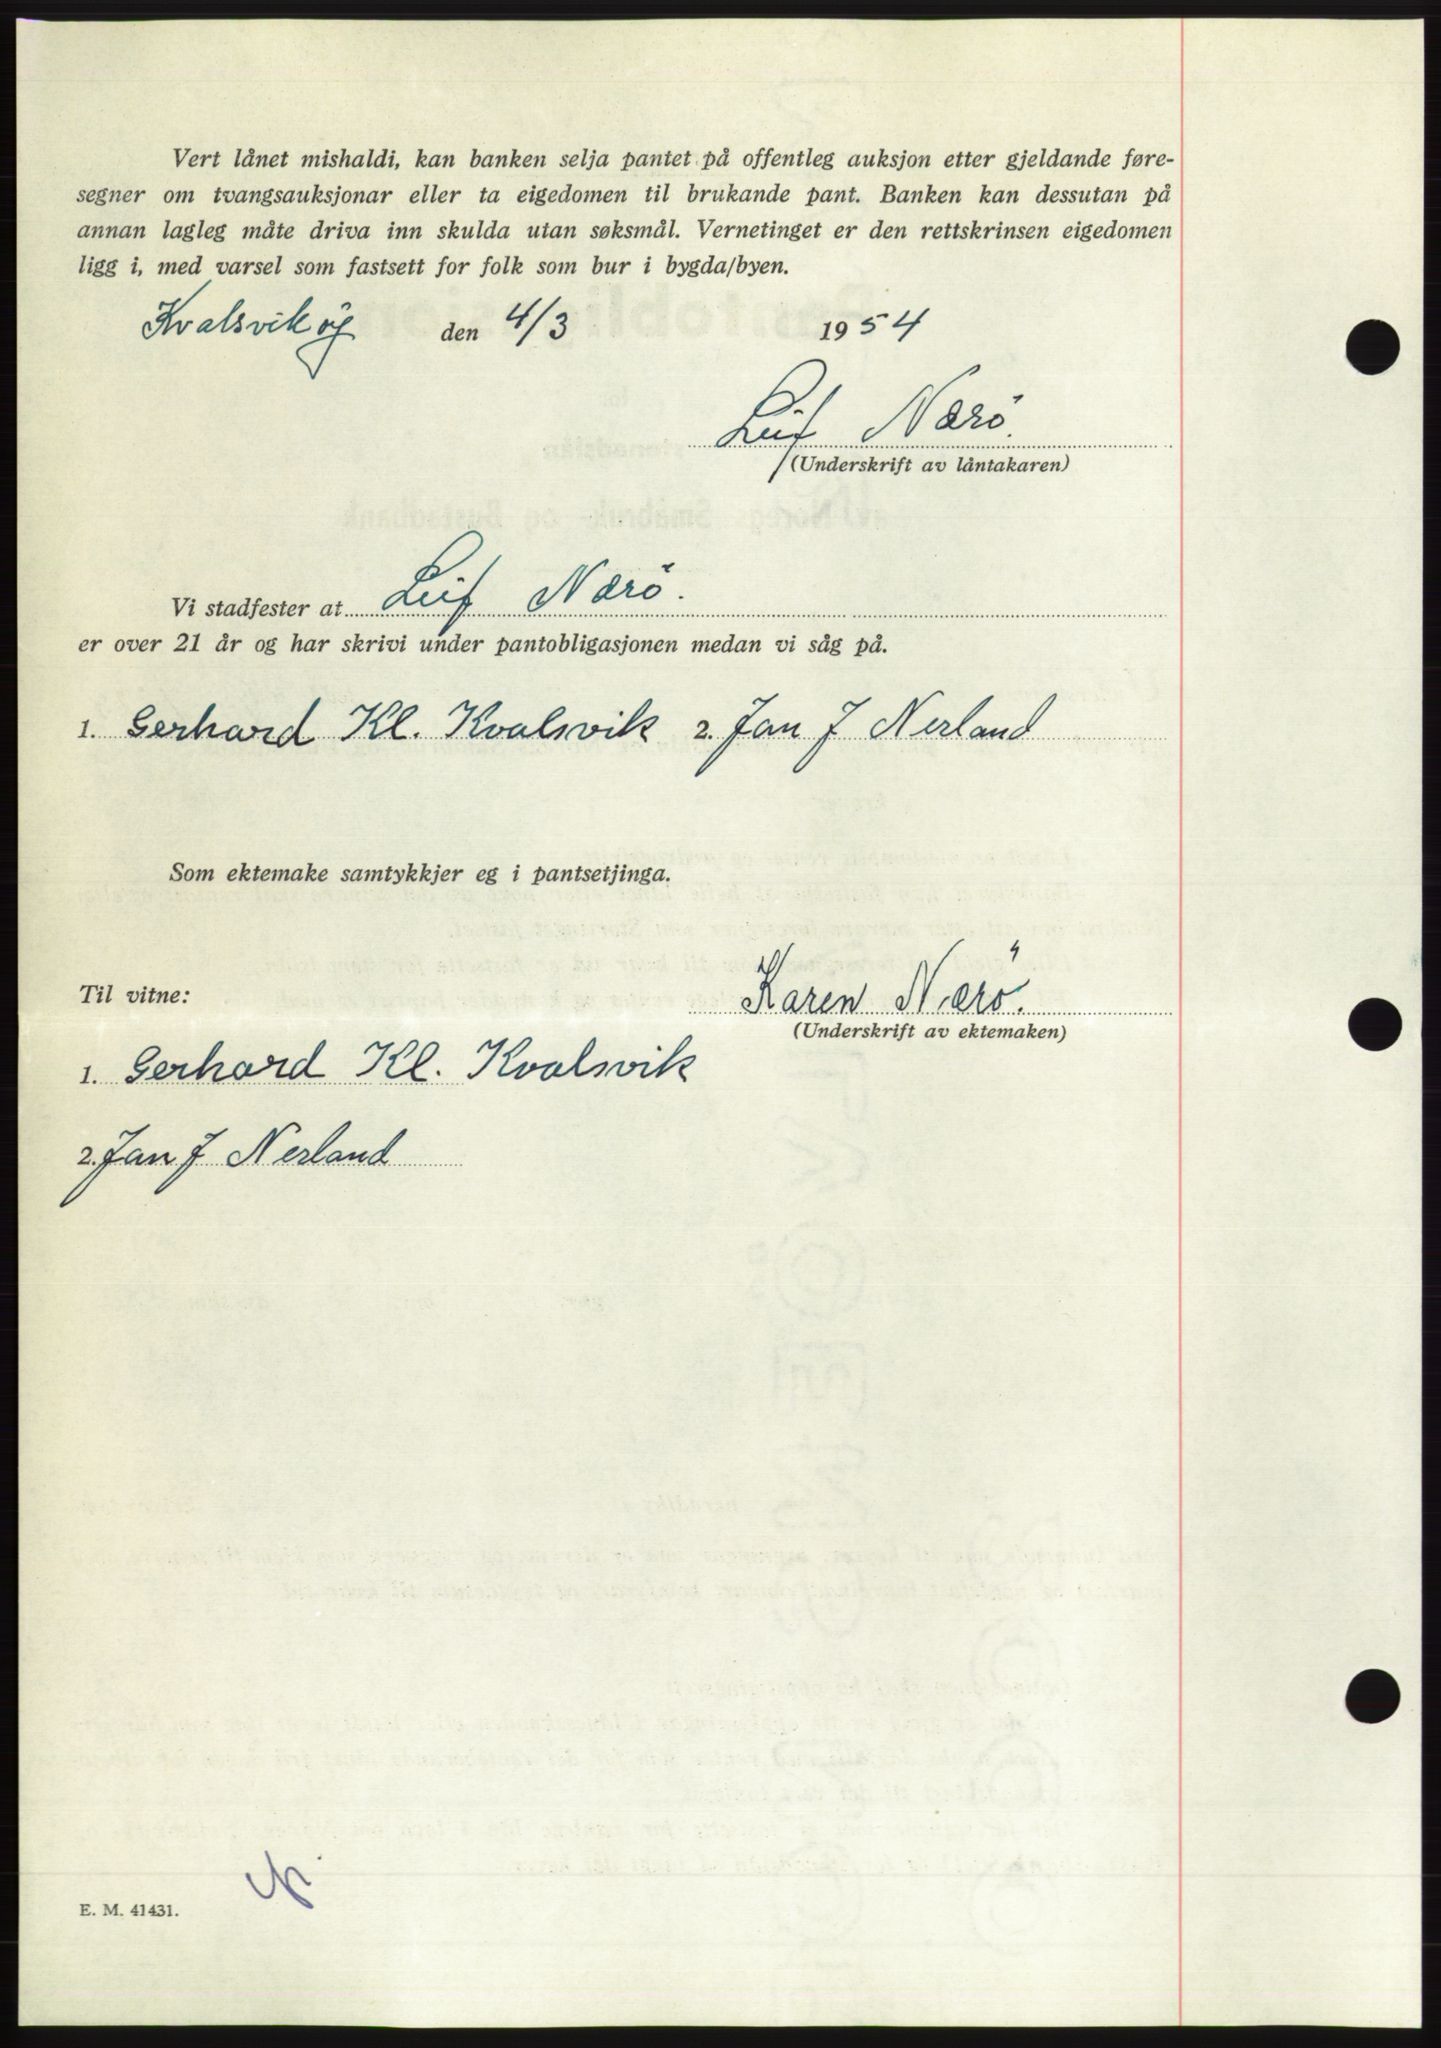 Vert lånet mishaldi, kan banken selja pantet på offentleg auksjon etter gjeldande føre-
segner om tvangsauksjonar eller ta eigedomen til brukande pant. Banken kan dessutan på
annan lagleg måte driva inn skulda utan søksmål. Vernetinget er den rettskrinsen eigedomen
ligg i, med varsel som fastsett for folk som bur i bygda/byen.
Kvalsvik den 4/3 1954
Leif Nærö.
(Underskrift av låntakaren)
Vi stadfester at Leif Nærö.
er over 21 år og har skrivi under pantobligasjonen medan vi såg på.
1. Gerhard Kl. Kvalsvik 2. Jan J Nerland
Som ektemake samtykkjer eg i pantsetjinga.
Til vitne:
Karen Nærö.
(Underskrift av ektemaken)
1. Gerhard Kl. Kvalsvik
2. Jan J Nerland
E. M. 41431.